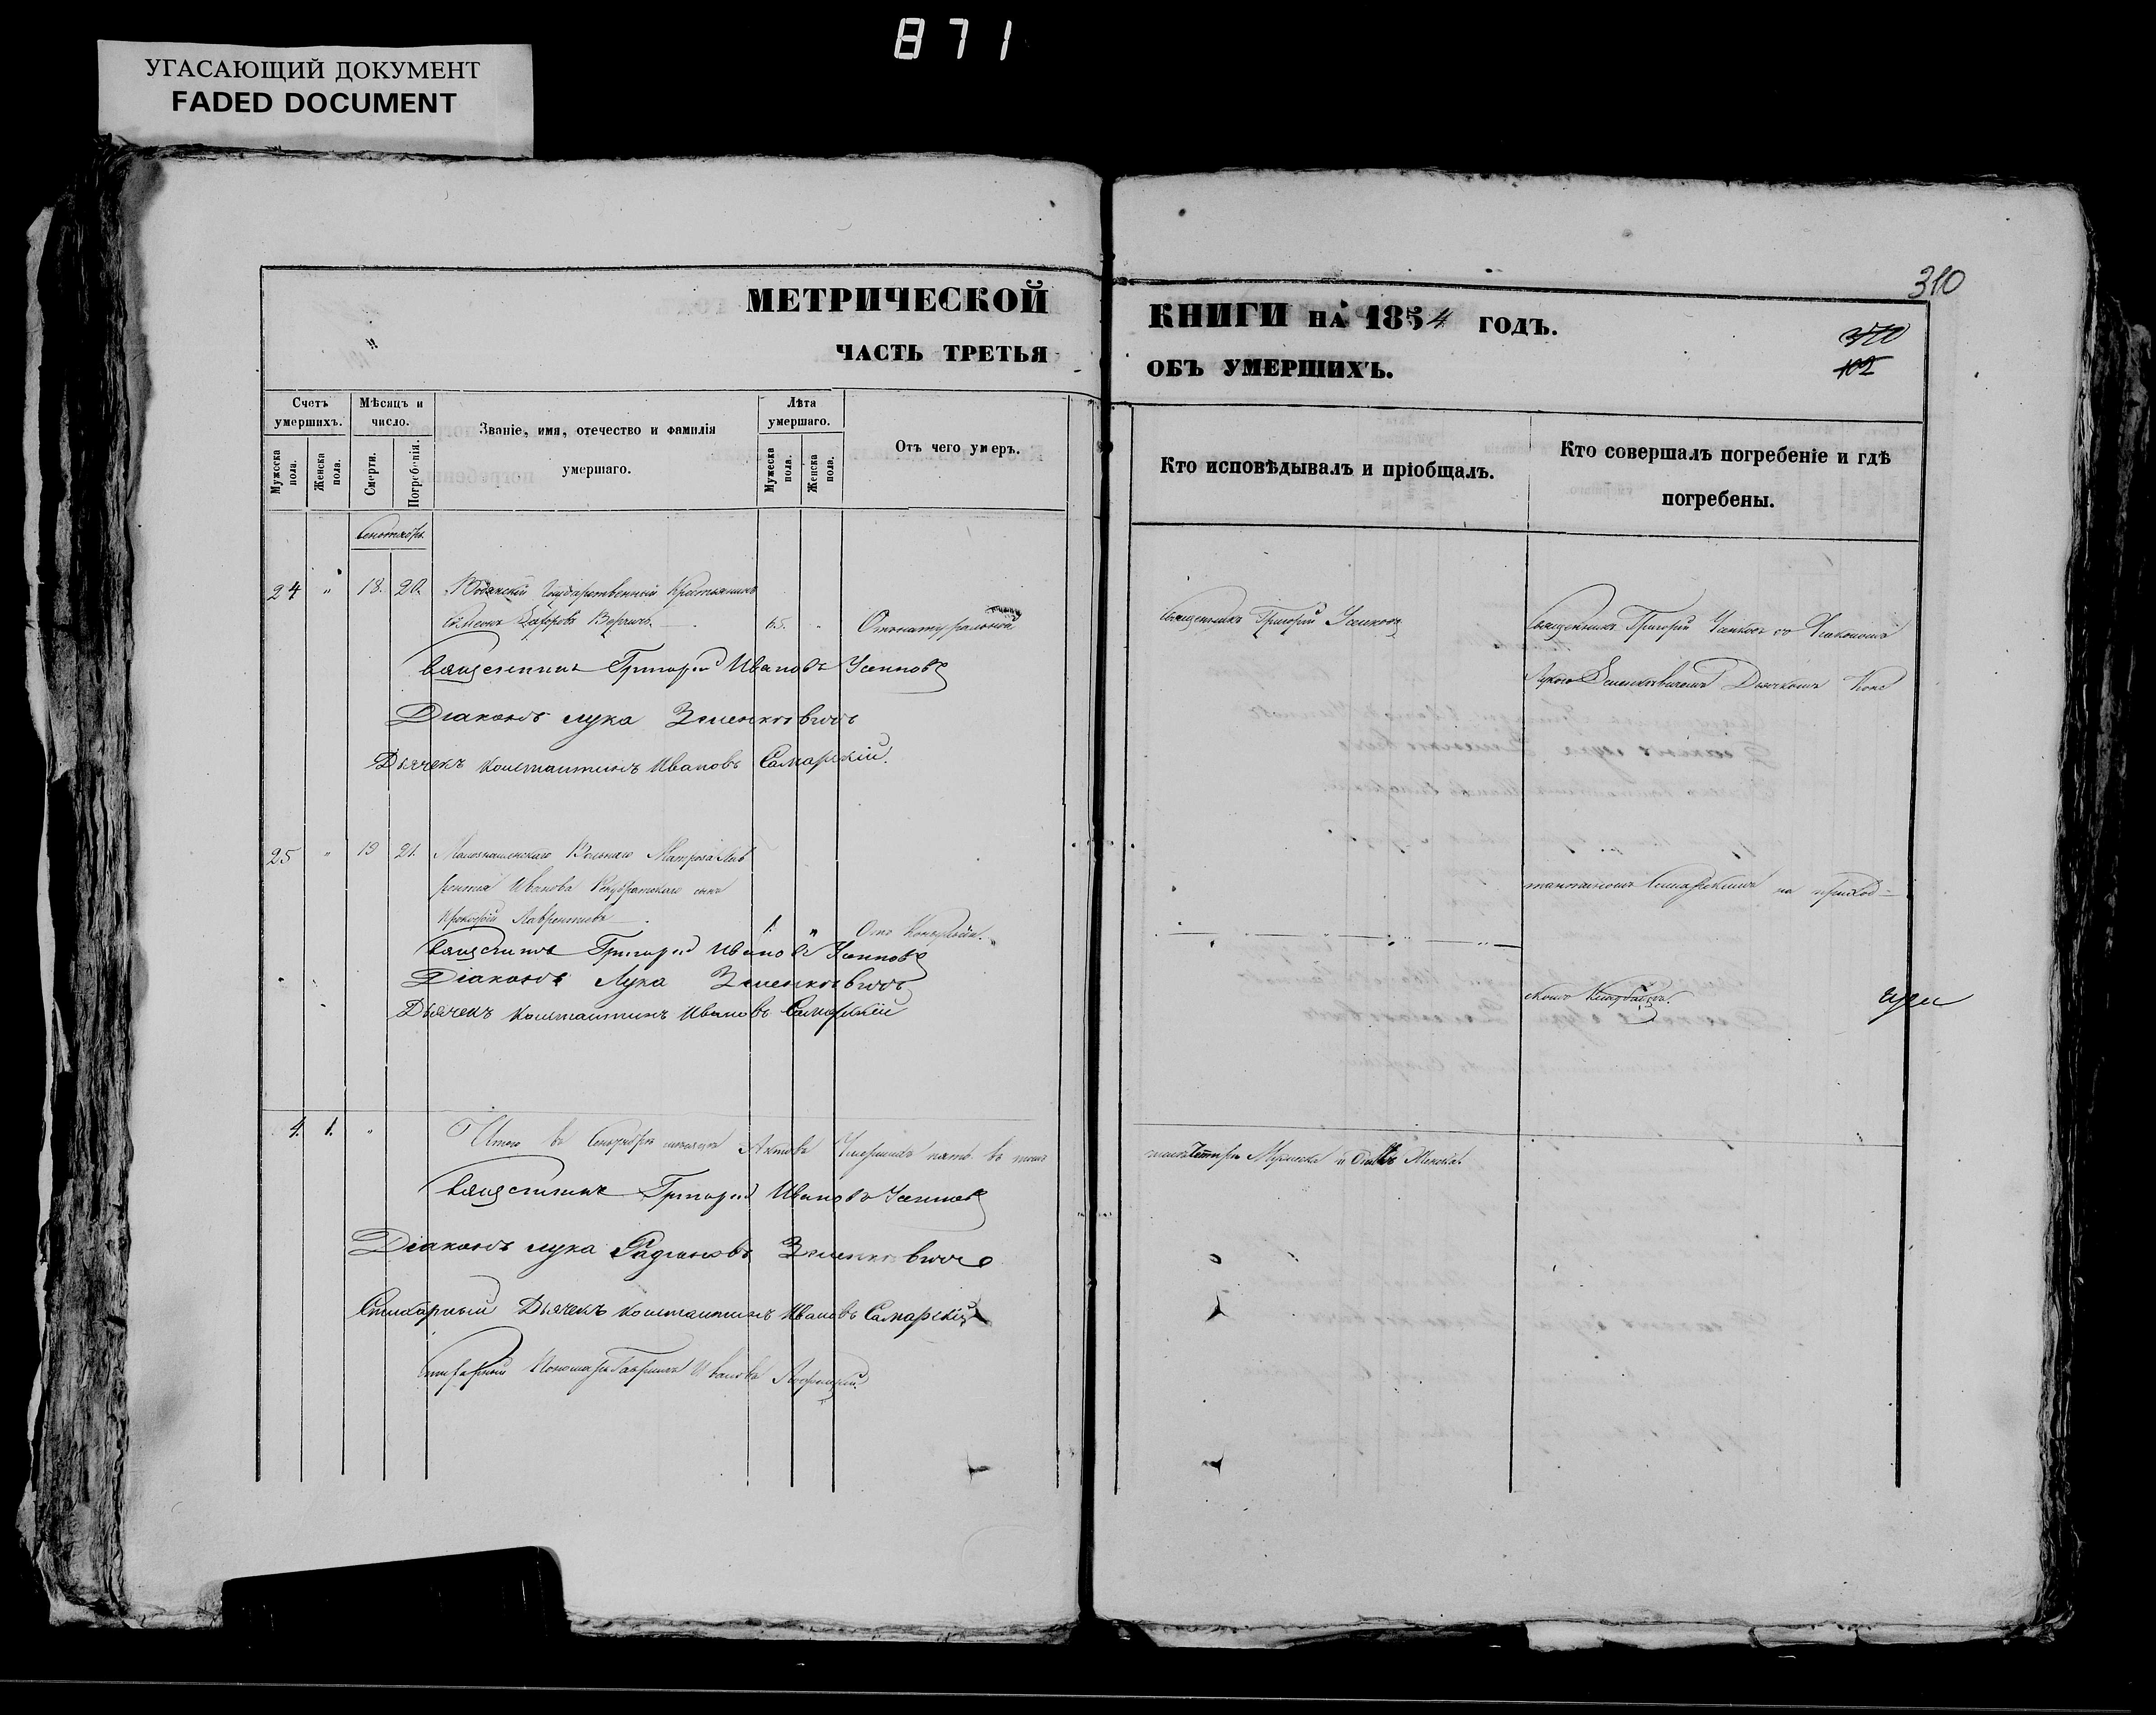 871
УГАСАЮЩИЙ ДОКУМЕНТ
FADED DOCUMENT
310
МЕТРИЧЕСКОЙ
КНИГИ НА 1854 ГОДЪ.
ЧАСТЬ ТРЕТЬЯ
ОБЪ УМЕРШИХЪ.
102
Счетъ умершихъ.
Мужеска пола.
Женска пола.
Мѣсяцъ и число.
Смерти.
Погребенія.
Званіе, имя, отечество и фамилія
умершаго.
Лѣта умершаго.
Мужеска пола.
Женска пола.
Отъ чего умеръ.
Кто исповѣдывалъ и пріобщалъ.
Кто совершалъ погребеніе и гдѣ
погребены.
Сентябрь
24 " 18. 20. Государственный Крестьянинъ
65. " Отъ натуральной
Священникъ Григорій Усиковъ
Священникъ Григорій Усиковъ со Діакономъ
Священникъ Григорій Ивановъ Усиковъ
Лукою Зеленкевичемъ Дьячкомъ Конс
Діаконъ Лука Зеленкевичъ
Дьячекъ Константинъ Ивановъ Самарскій.
25 " 19 21. Вольнаго Матроза Лав
рентія Иванова сынъ
Прокофій Лаврентіевъ 1. " Отъ
тантиномъ Самарскимъ на приход
Священникъ Григорій Ивановъ Усиковъ
Діаконъ Лука Зеленкевичъ
скомъ Кладбищѣ.
Дьячекъ Константинъ Ивановъ Самарскій
4. 1. " Итого въ Сентябрѣ мѣсяцѣ Актовъ Умершихъ пять въ томъ
числѣ Четыре Мужеска и Одинъ Женска.
Священникъ Григорій Ивановъ Усиковъ
Діаконъ Лука Зеленкевичъ
Стихарный Дьячекъ Константинъ Ивановъ Самарскій
Стихарный Пономарь Гавріилъ Ивановъ